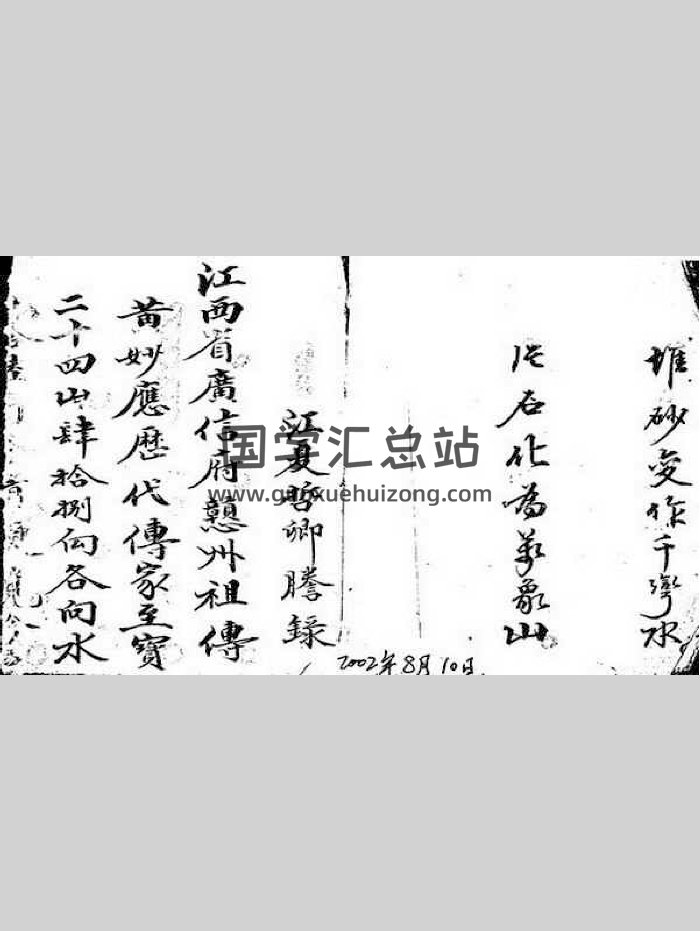 堆砂变作千灣水
片石化為萬象山
江夏哲卿謄錄
江西省廣信府贛州祖傳
黃妙應歷代傳家至寶
二十四山肆拾捌向各向水
2002年8月10日
国学汇总站
www.guoxuehuizong.com